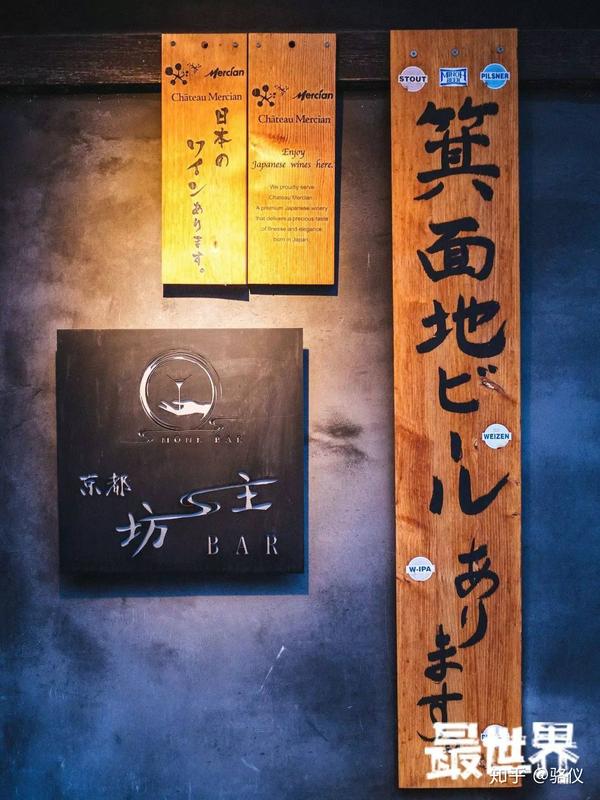 Mercian
Château Mercian
日本の
ワインあります。
Mercian
Château Mercian
Enjoy
Japanese wines here.
We proudly serve
Chateau Mercian.
A premium Japanese winery
that delivers a precious taste
of finesse and elegance
born in Japan.
MONK BAR
京都
坊主
BAR
STOUT
MINOH
BEER
PILSNER
箕面地ビール
あり
ます
WEIZEN
W-IPA
最世界
知乎 @骆仪